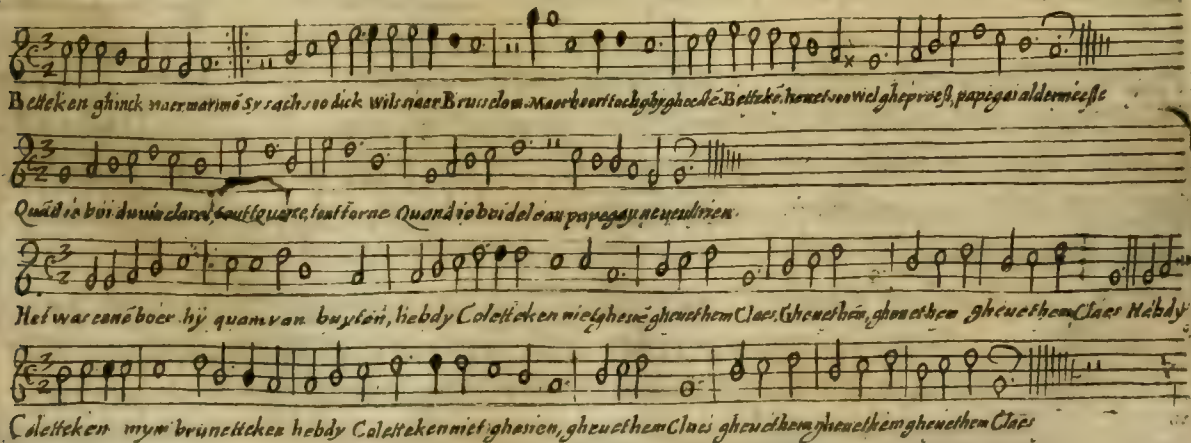 Betteken ghinck naer marimõ Sy sach soo dick wils naer Brusselom. Maer hoort toch ghy gheesté Bettekẽ. hou et soo wiel gheproest, papegai aldermeeste
Quãd io boi du vin claret, tout tourne, tout torne Quand io boi del eau papegay ne veult rien.
Het was eenẽ boer hy quam van buyten, hebdy Coletteken niet ghesiẽ gheuet hem Claes. Gheuet hem, gheuet hem gheuet hem Claes Hebdy
Coletteken myn brunetteken hebdy Coletteken niet ghesien, gheuet hem Claes gheuet hem gheuet hem gheuet hem Claes